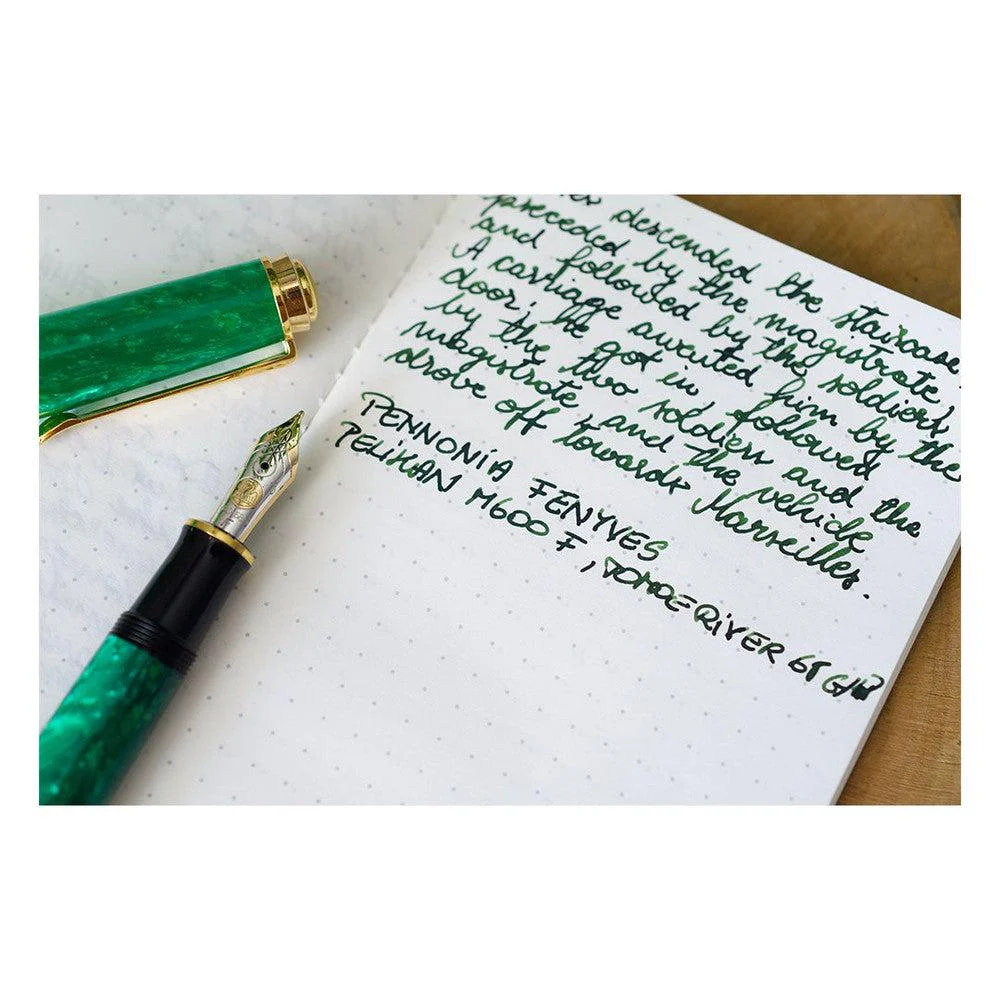 descended the staircase,
preceded by the magistrate
and followed by the soldiers.
A carriage awaited him by the
door; he got in followed
by the two soldiers and the
magistrate, and the vehicle
drove off towards Marseilles.
PENNONIA FENYVES
PELIKAN M600 F, TOMOE RIVER